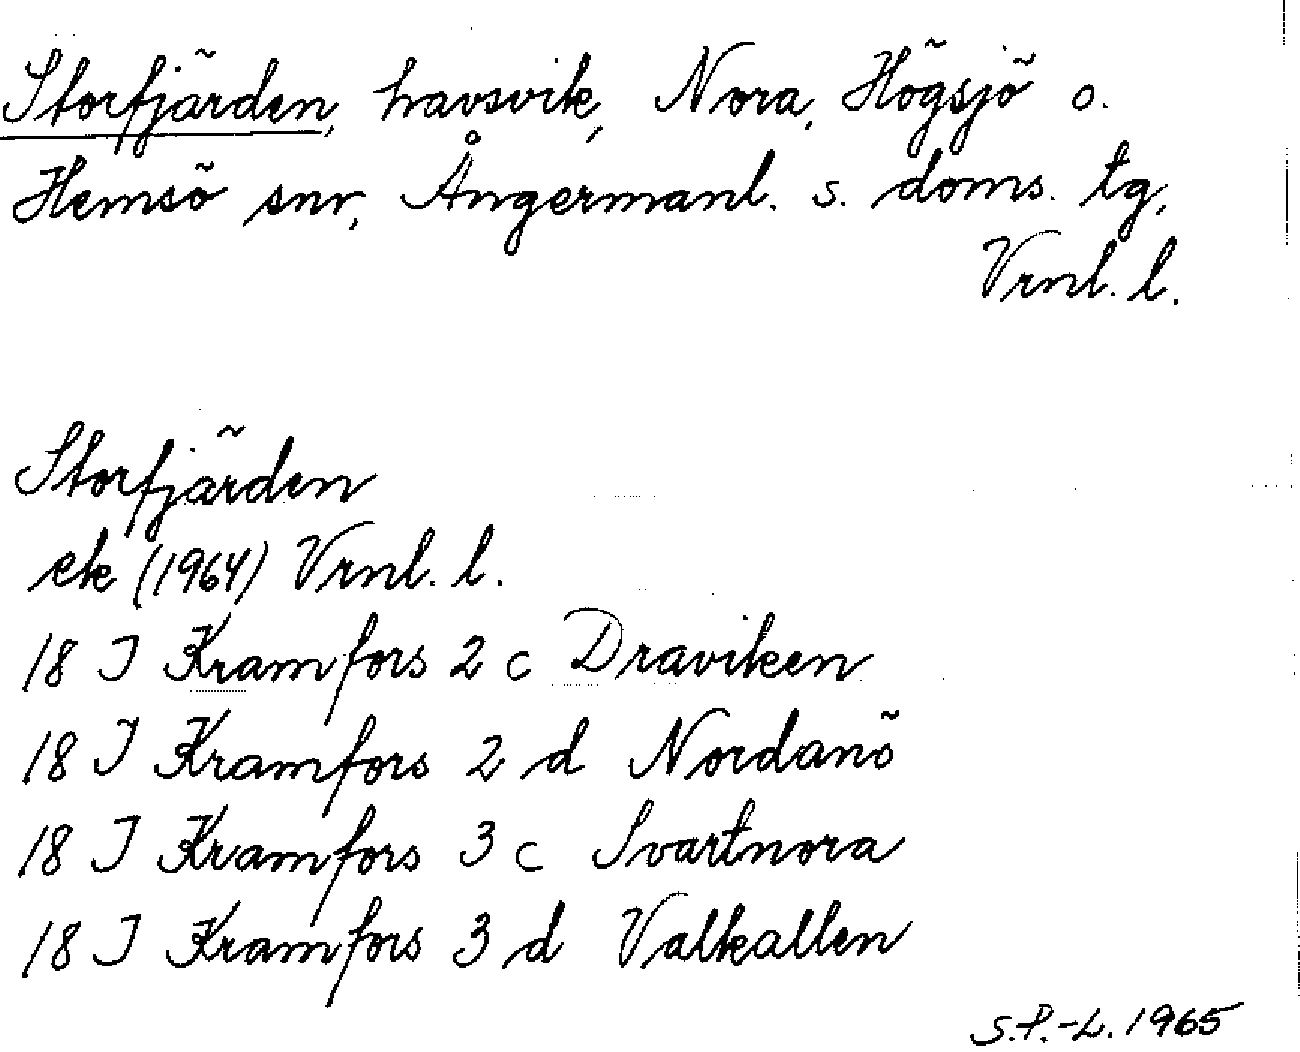 Storfjärden, havsvik, Nora, Högsjö o.
Hemsö snr, Ångermanl. s. doms. tg,
Vrnl. l.
Storfjärden
ek (1964) Vrnl. l.
18 I Kramfors 2 c Draviken
18 I Kramfors 2 d Nordanö
18 I Kramfors 3 c Svartnora
18 I Kramfors 3 d Valkallen
S.P.-L. 1965